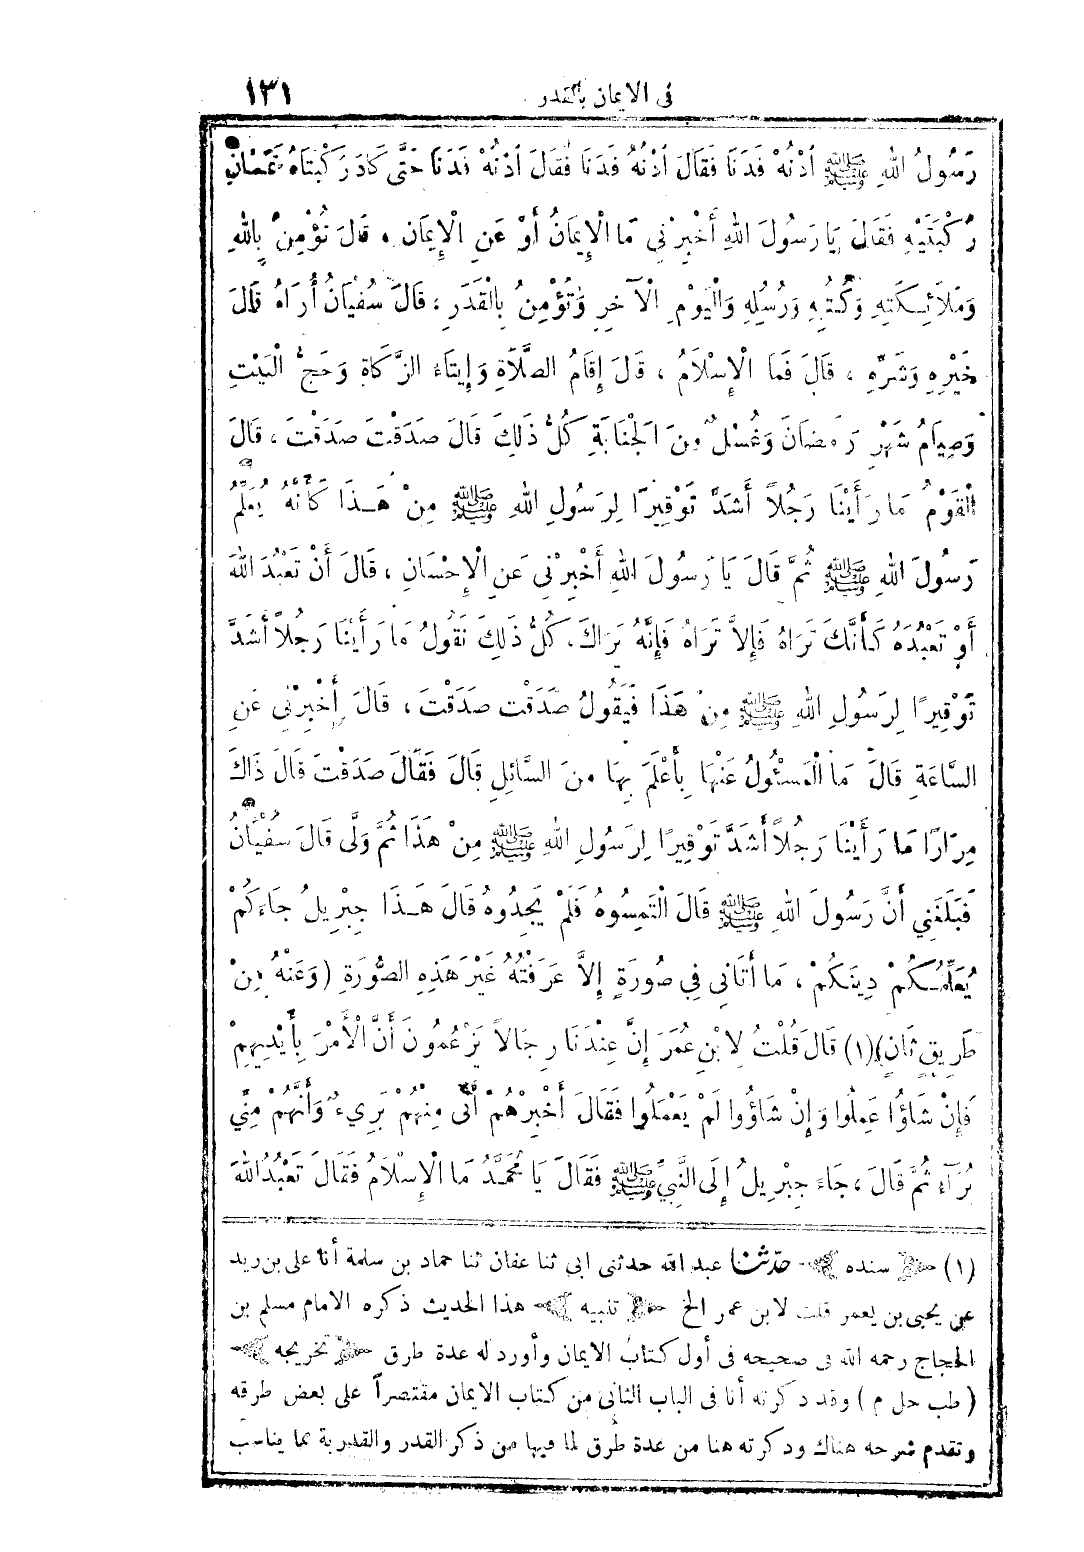 فى الايمان بالقدر ١٣١
رَسُولُ اللهِ ﷺ اُدْنُهْ فَدَنَا فَقَالَ اُدْنُهْ فَدَنَا فَقَالَ اُدْنُهْ فَدَنَا حَتَّى كَادَ رُكْبَتَاهُ تَمَسَّانِ
رُكْبَتَيْهِ فَقَالَ يَا رَسُولَ اللهِ أَخْبِرْنِي مَا الْإِيمَانُ أَوْ عَنِ الْإِيمَانِ ، قَالَ تُؤْمِنُ بِاللهِ
وَمَلَائِكَتِهِ وَكُتُبِهِ وَرُسُلِهِ وَالْيَوْمِ الْآخِرِ وَتُؤْمِنُ بِالْقَدَرِ ، قَالَ سُفْيَانُ أُرَاهُ قَالَ
خَيْرِهِ وَشَرِّهِ ، قَالَ فَمَا الْإِسْلَامُ ، قَالَ إِقَامُ الصَّلَاةِ وَإِيتَاءُ الزَّكَاةِ وَحَجُّ الْبَيْتِ
وَصِيَامُ شَهْرِ رَمَضَانَ وَغُسْلٌ مِنَ الْجَنَابَةِ كُلُّ ذَلِكَ قَالَ صَدَقْتَ صَدَقْتَ ، قَالَ
الْقَوْمُ مَا رَأَيْنَا رَجُلاً أَشَدَّ تَوْقِيرًا لِرَسُولِ اللهِ ﷺ مِنْ هَـذَا كَأَنَّهُ يُعَلِّمُ
رَسُولَ اللهِ ﷺ ثُمَّ قَالَ يَا رَسُولَ اللهِ أَخْبِرْنِي عَنِ الْإِحْسَانِ ، قَالَ أَنْ تَعْبُدَ اللهَ
أَوْ تَعْبُدَهُ كَأَنَّكَ تَرَاهُ فَإِلاَّ تَرَاهُ فَإِنَّهُ يَرَاكَ ، كُلُّ ذَلِكَ نَقُولُ مَا رَأَيْنَا رَجُلاً أَشَدَّ
تَوْقِيرًا لِرَسُولِ اللهِ ﷺ مِنْ هَذَا فَيَقُولُ صَدَقْتَ صَدَقْتَ ، قَالَ أَخْبِرْنِي عَنِ
السَّاعَةِ قَالَ مَا الْمَسْئُولُ عَنْهَا بِأَعْلَمَ بِهَا مِنَ السَّائِلِ قَالَ فَقَالَ صَدَقْتَ قَالَ ذَاكَ
مِرَارًا مَا رَأَيْنَا رَجُلاً أَشَدَّ تَوْقِيرًا لِرَسُولِ اللهِ ﷺ مِنْ هَذَا ثُمَّ وَلَّى قَالَ سُفْيَانُ
فَبَلَغَنِي أَنَّ رَسُولَ اللهِ ﷺ قَالَ الْتَمِسُوهُ فَلَمْ يَجِدُوهُ قَالَ هَـذَا جِبْرِيلُ جَاءَكُمْ
يُعَلِّمُـكُمْ دِينَكُمْ ، مَا أَتَانِي فِي صُورَةٍ إِلاَّ عَرَفْتُهُ غَيْرَ هَذِهِ الصُّورَةِ (وَعَنْهُ مِنْ
طَرِيقٍ ثَانٍ)(١) قَالَ قُلْتُ لِابْنِ عُمَرَ إِنَّ عِنْدَنَا رِجَالاً يَزْعُمُونَ أَنَّ الْأَمْرَ بِأَيْدِيهِمْ
فَإِنْ شَاؤُا عَمِلُوا وَإِنْ شَاؤُوا لَمْ يَعْمَلُوا فَقَالَ أَخْبِرْهُمْ أَنِّي مِنْهُمْ بَرِيءٌ وَأَنَّهُمْ مِنِّي
بُرَآءُ ثُمَّ قَالَ ، جَاءَ جِبْرِيلُ إِلَى النَّبِيِّ ﷺ فَقَالَ يَا مُحَمَّدُ مَا الْإِسْلَامُ فَقَالَ تَعْبُدُ اللهَ
(١) ﴿ سنده ﴾ حَدَّثَنَا عبد الله حدثنى ابى ثنا عفان ثنا حماد بن سلمة أنا على بن زيد
عن يحيى بن يعمر قلت لابن عمر الخ ﴿ تنبيه ﴾ هذا الحديث ذكره الامام مسلم بن
الحجاج رحمه الله فى صحيحه فى أول كتاب الايمان وأورد له عدة طرق ﴿ تخريجه ﴾
( طب حل م ) وقد ذكرته أنا فى الباب الثانى من كتاب الايمان مقتصراً على بعض طرقه
وتقدم شرحه هناك وذكرته هنا من عدة طرق لما فيها من ذكر القدر والقدرية بما يناسب